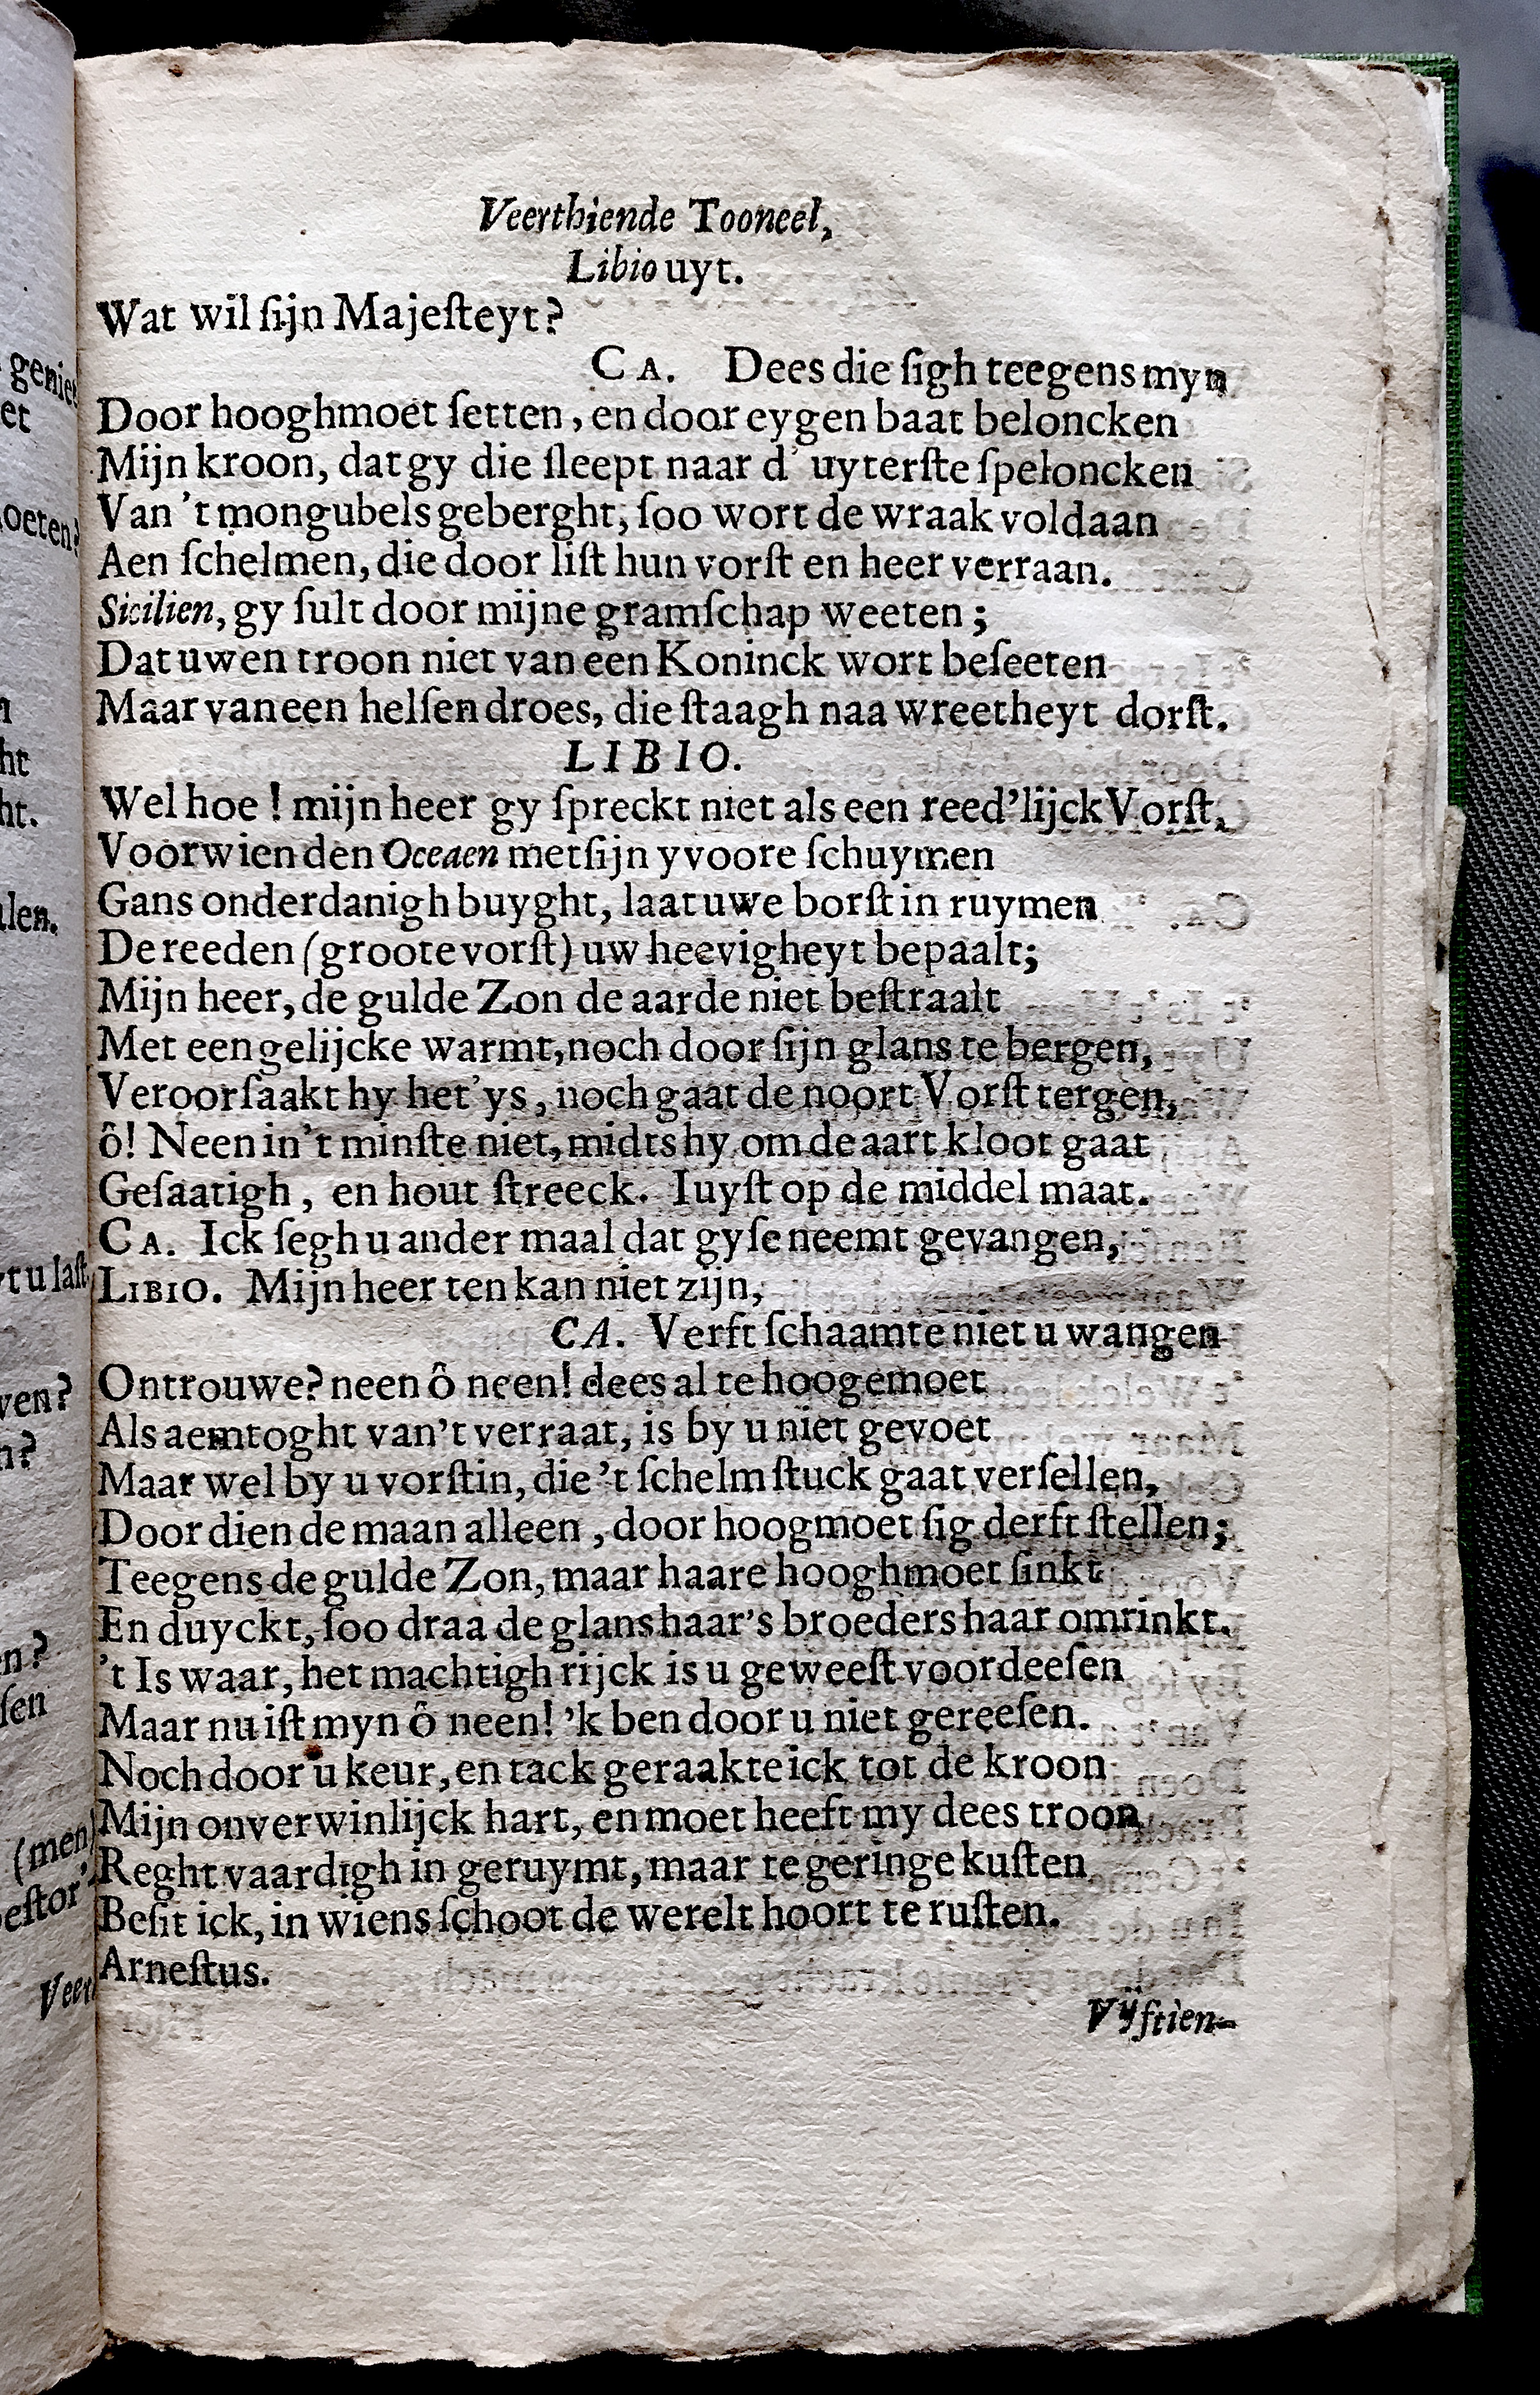 Veerthiende Tooneel,
Libio uyt.
Wat wil ſijn Majeſteyt?
CA. Dees die ſigh teegens myn
Door hooghmoet ſetten, en door eygen baat beloncken
Mijn kroon, dat gy die ſleept naar d' uyterſte ſpeloncken
Van 't mongubels geberght, ſoo wort de wraak voldaan
Aen ſchelmen, die door liſt hun vorſt en heer verraan.
Sicilien, gy ſult door mijne gramſchap weeten;
Dat uwen troon niet van een Koninck wort beſeeten
Maar van een helſen droes, die ſtaagh naa wreetheyt dorſt.
LIBIO.
Wel hoe! mijn heer gy ſpreckt niet als een reed'lijck Vorſt,
Voor wien den Oceaen met ſijn yvoore ſchuymen
Gans onderdanigh buyght, laat uwe borſt in ruymen
De reeden (groote vorſt) uw heevigheyt bepaalt;
Mijn heer, de gulde Zon de aarde niet beſtraalt
Met een gelijcke warmt, noch door ſijn glans te bergen,
Veroorſaakt hy het ys, noch gaat de noort Vorſt tergen,
ô! Neen in 't minſte niet, midts hy om de aart kloot gaat
Geſaatigh, en hout ſtreeck. Iuyſt op de middel maat.
CA. Ick ſegh u ander maal dat gy ſe neemt gevangen,
LIBIO. Mijn heer ten kan niet zijn,
CA. Verft ſchaamte niet u wangen
Ontrouwe? neen ô neen! dees al te hooge moet
Als aemtoght van't verraat, is by u niet gevoet
Maar wel by u vorſtin, die 't ſchelmſtuck gaat verſellen,
Door dien de maan alleen, door hoogmoet ſig derft ſtellen;
Teegens de gulde Zon, maar haare hooghmoet ſinkt
En duyckt, ſoo draa de glans haar's broeders haar omrinkt.
't Is waar, het machtigh rijck is u geweeſt voor deeſen
Maar nu iſt myn ô neen! 'k ben door u niet gereeſen.
Noch door u keur, en tack geraakte ick tot de kroon
Mijn onverwinlijck hart, en moet heeft my dees troon
Reghtvaardigh in geruymt, maar te geringe kuſten
Beſit ick, in wiens ſchoot de werelt hoort te ruſten.
Arneſtus.
Vÿftien-